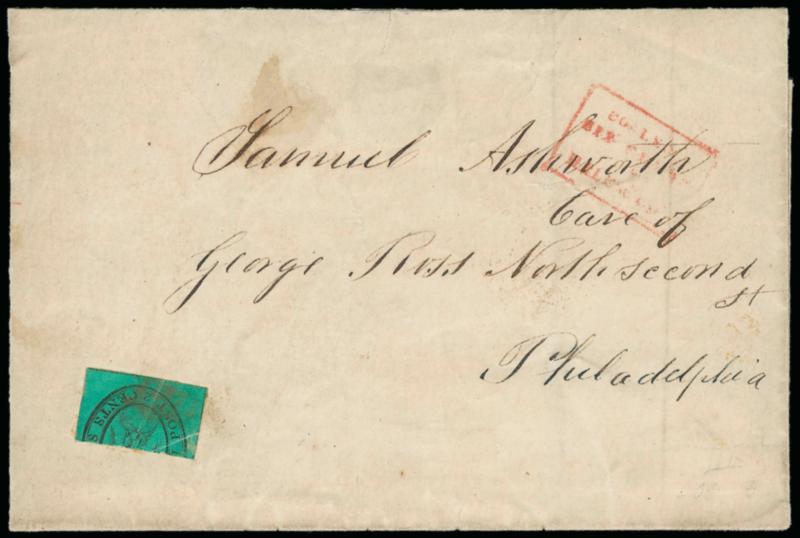 Samuel Ashworth
Care of
George Ross North second
St
Philadelphia
POST
CENTS